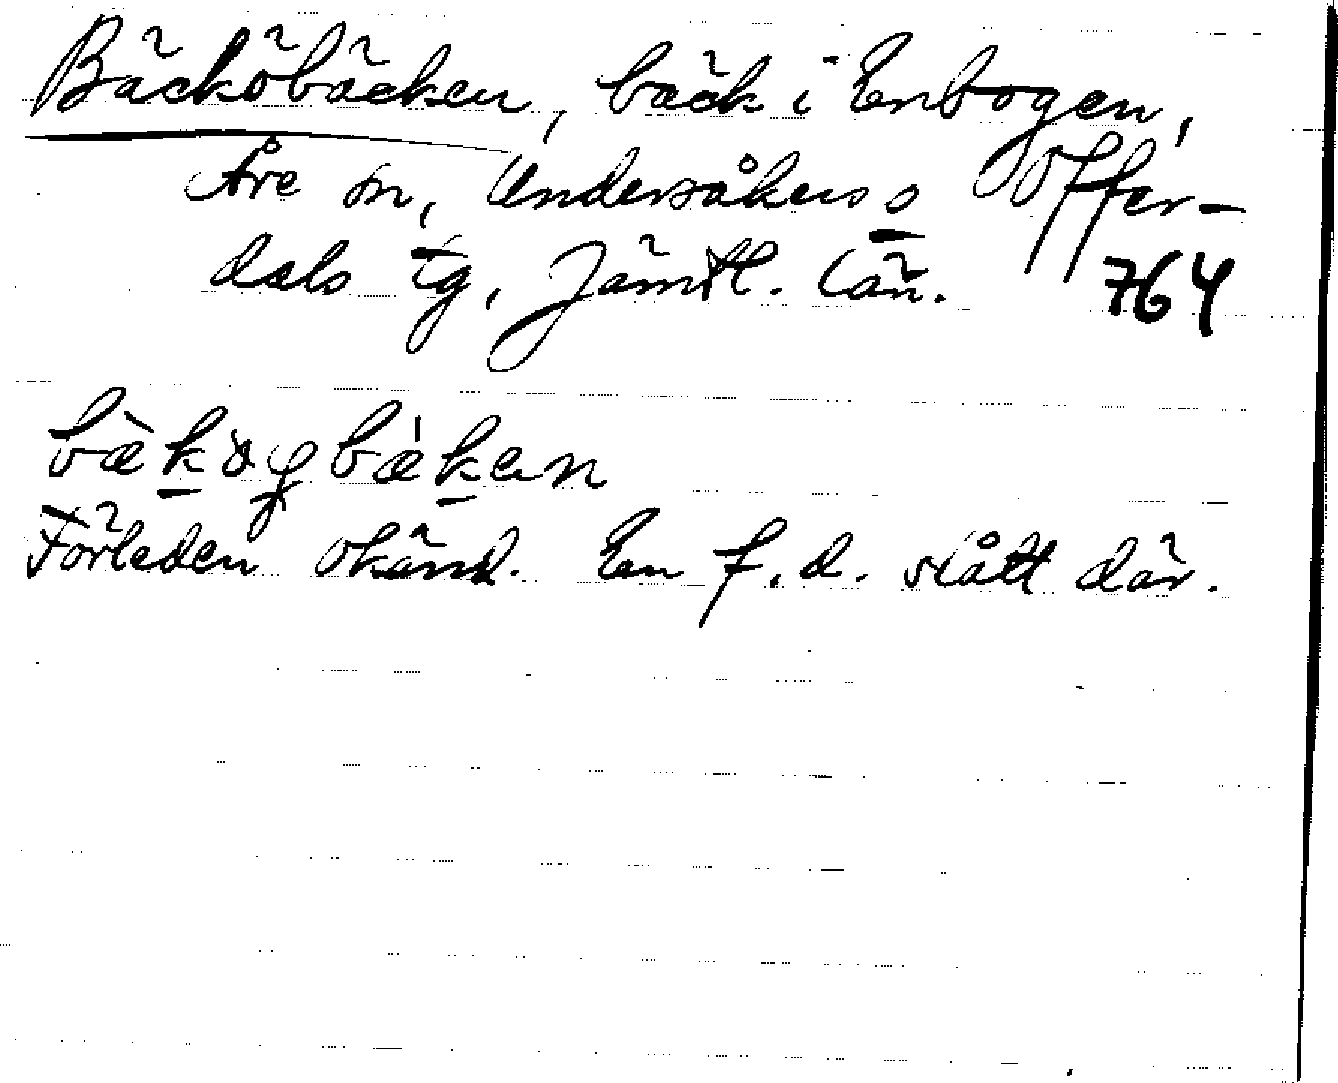 Bäcköbäcken, bäck i Enbogen,
Åre sn, Undersåkers o Offer-
dals tg, Jämtl. län. 764
Förleden okänd. En f.d. slått där.